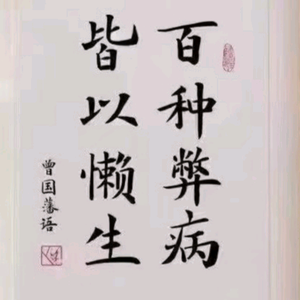 百种弊病
皆以懒生
曾国藩语